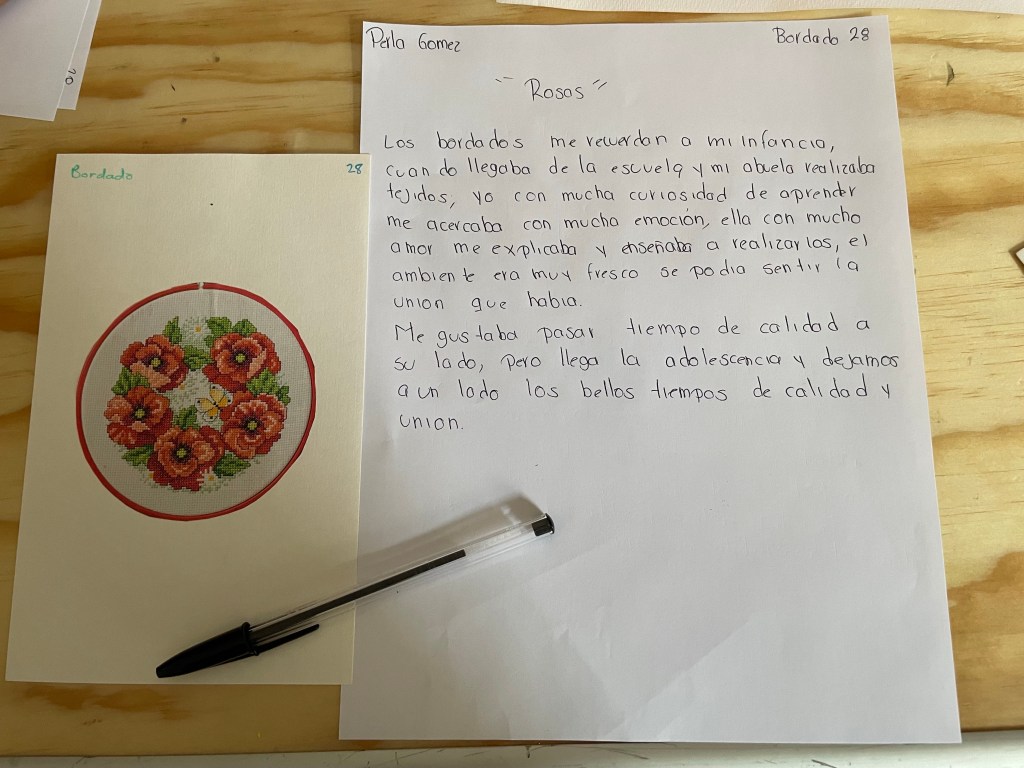 20
Bordado 28
Perla Gomez
Bordado 28
"Rosas"
Los bordados me recuerdan a mi infancia,
cuando llegaba de la escuela y mi abuela realizaba
tejidos, yo con mucha curiosidad de aprender
me acercaba con mucha emoción, ella con mucho
amor me explicaba y enseñaba a realizarlos, el
ambiente era muy fresco se podia sentir la
union que habia.
Me gustaba pasar tiempo de calidad a
su lado, pero llega la adolescencia y dejamos
a un lado los bellos tiempos de calidad y
union.